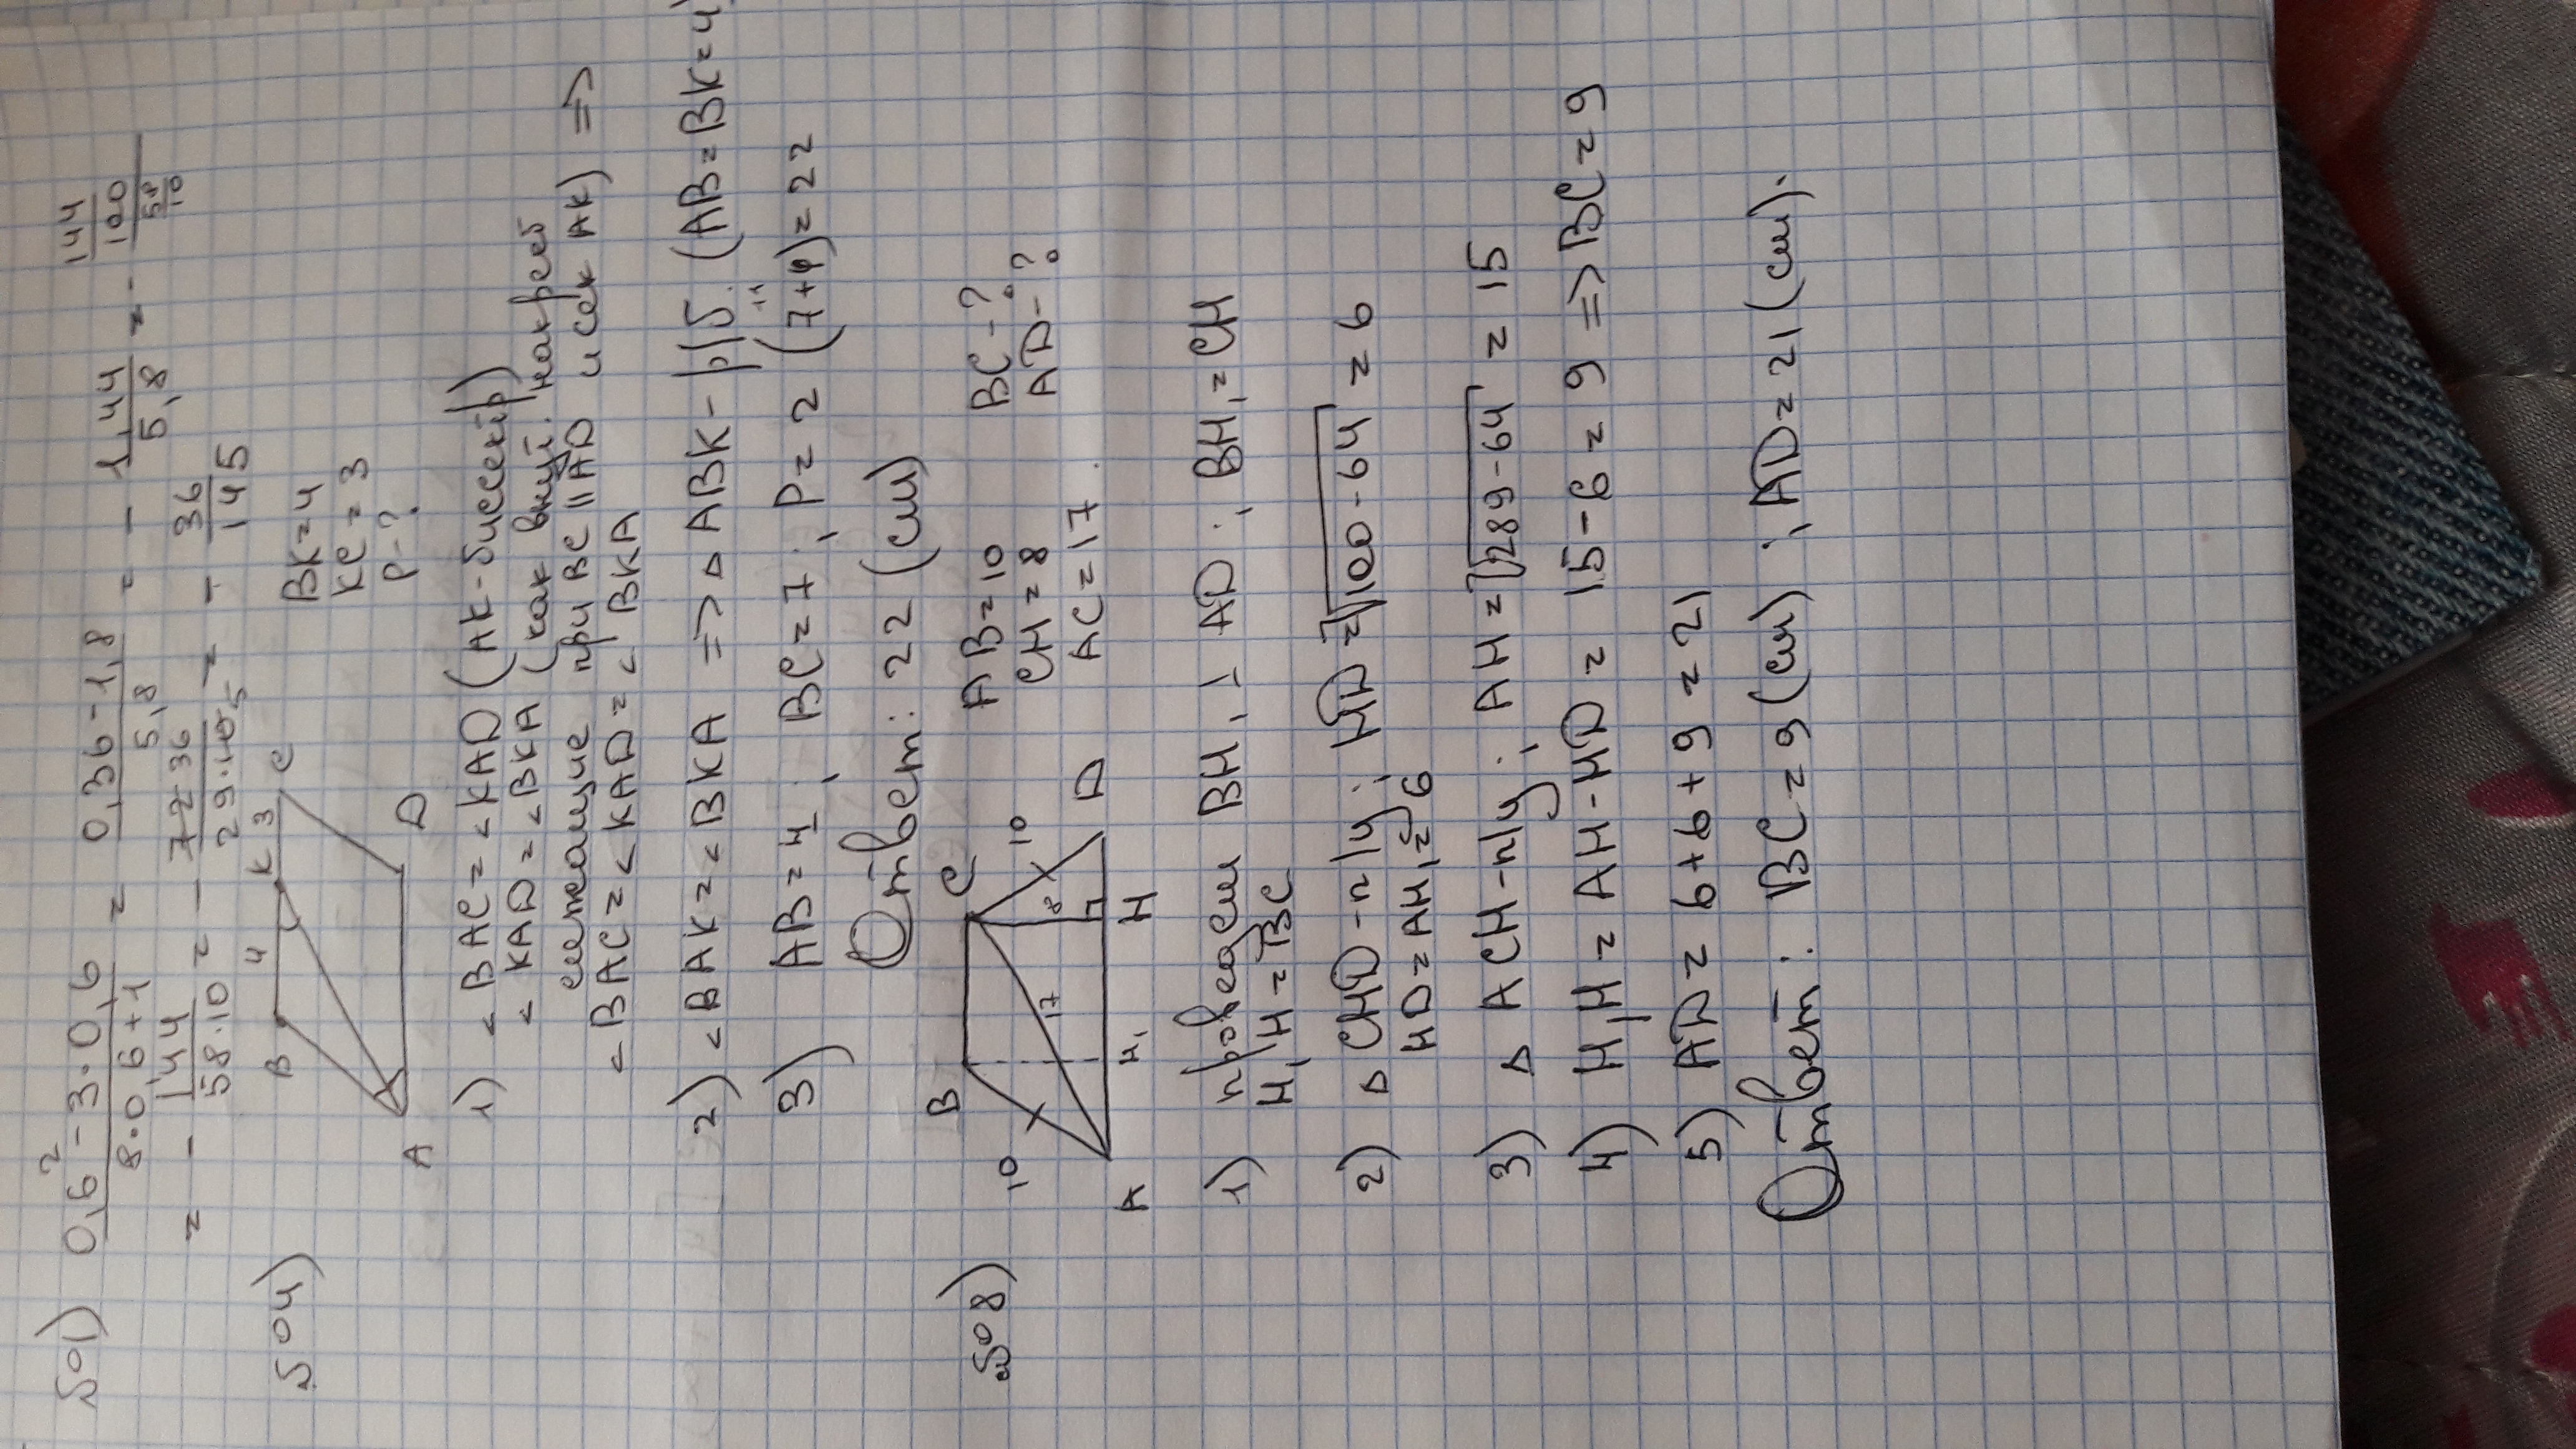 501) 0,6² - 3·0,6 / 8·0,6+1 = 0,36-1,8 / 5,8 = - 1,44 / 5,8 = - 144/100 / 58/10
= - 144 / 58·10 = - 72 36 / 29·10 5 = - 36 / 145
504) B 4 K 3 C A D
BK=4
KC=3
P-?
1) < BAC = < KAD (AK-биссектр)
< KAD = < BKA (как внут. накрест
лежащие при BC || AD и сек AK) =>
< BAC = < KAD = < BKA
2) < BAK = < BKA => △ ABK - р/б. (AB=BK=4
3) AB=4; BC=7; P= 2 (7+4) = 22
11
Ответ: 22 (см)
508) B C 10 10 17 8 A H₁ H D
AB=10 BC-?
CH=8 AD-?
AC=17
1) проведём BH₁ ⊥ AD; BH₁=CH
H₁H=BC
2) △ CHD-п/у; HD = √100-64 = 6
HD=AH₁=6
3) △ ACH-п/у; AH = √289-64 = 15
4) H₁H = AH-HD = 15-6 = 9 => BC=9
5) AD = 6+6+9 = 21
Ответ: BC=9 (см); AD=21 (см).